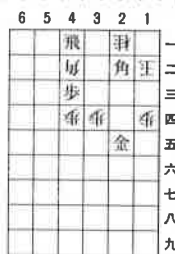 6 5 4 3 2 1
飛 桂 一
角 角 王 二
歩 三
歩 歩 歩 四
金 五
六
七
八
九